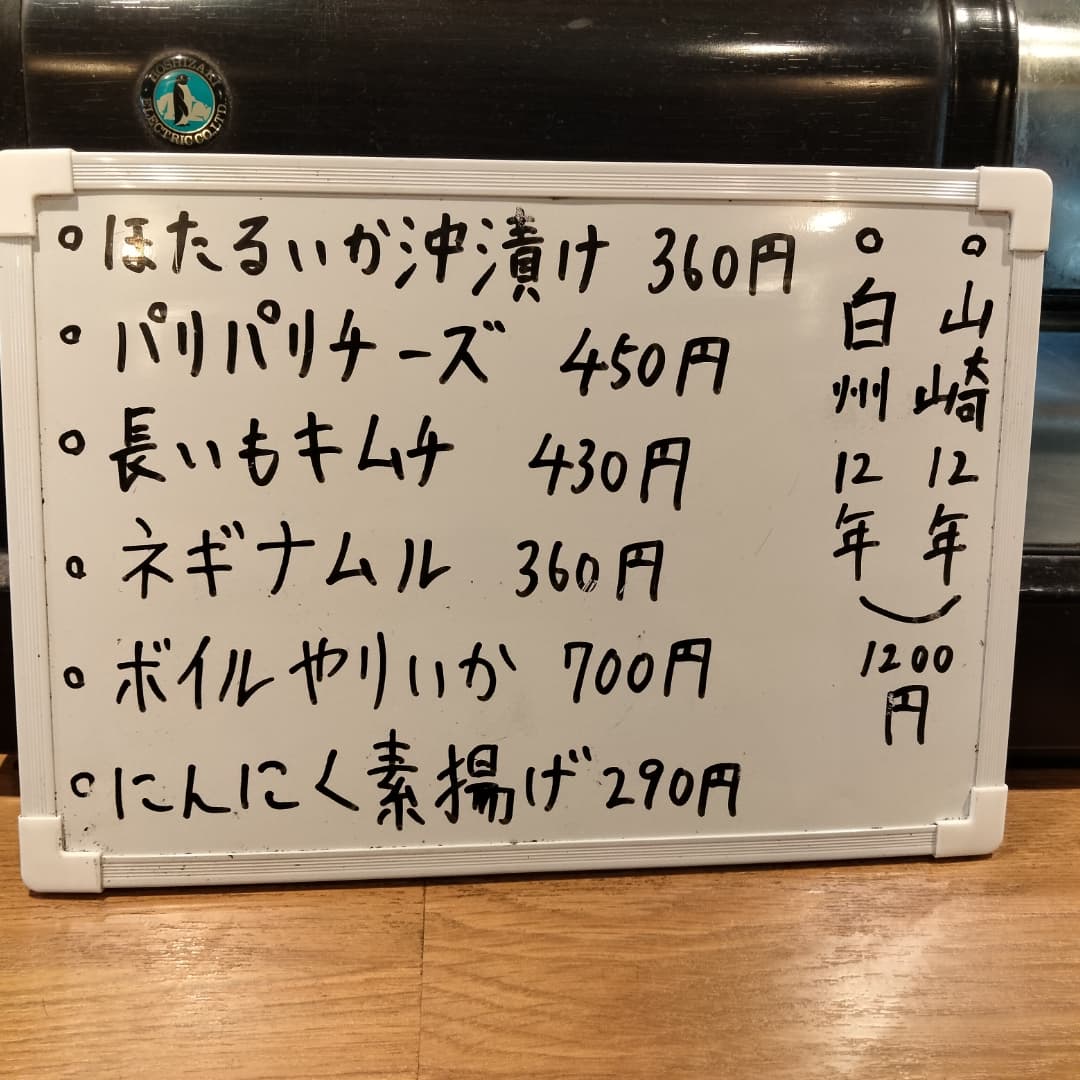 HOSHIZAKI
ELECTRIC CO.LTD.
ほたるいか沖漬け 360円
パリパリチーズ 450円
長いもキムチ 430円
ネギナムル 360円
ボイルやりいか 700円
にんにく素揚げ 290円
山崎12年
白州12年
1200
円